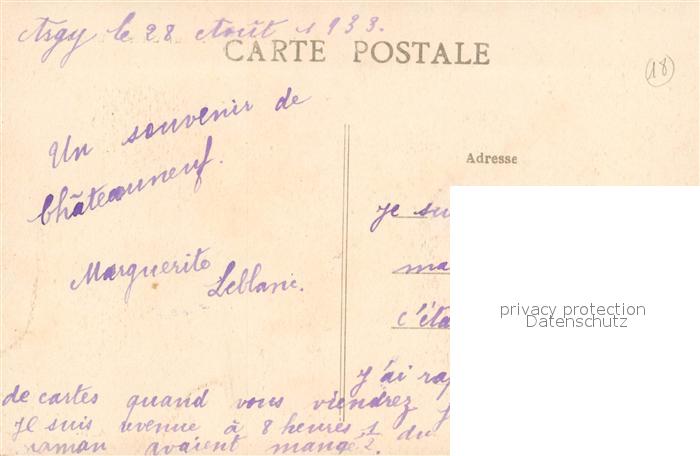 Argy le 28 Août 1933.
CARTE POSTALE
18
Un souvenir de
Châteauneuf.
Adresse
je
Marguerite
Leblanc.
c'éta
privacy protection
Datenschutz
J'ai rap
de cartes quand vous viendrez
je suis revenue à 8 heures ½ du
maman avaient mangé